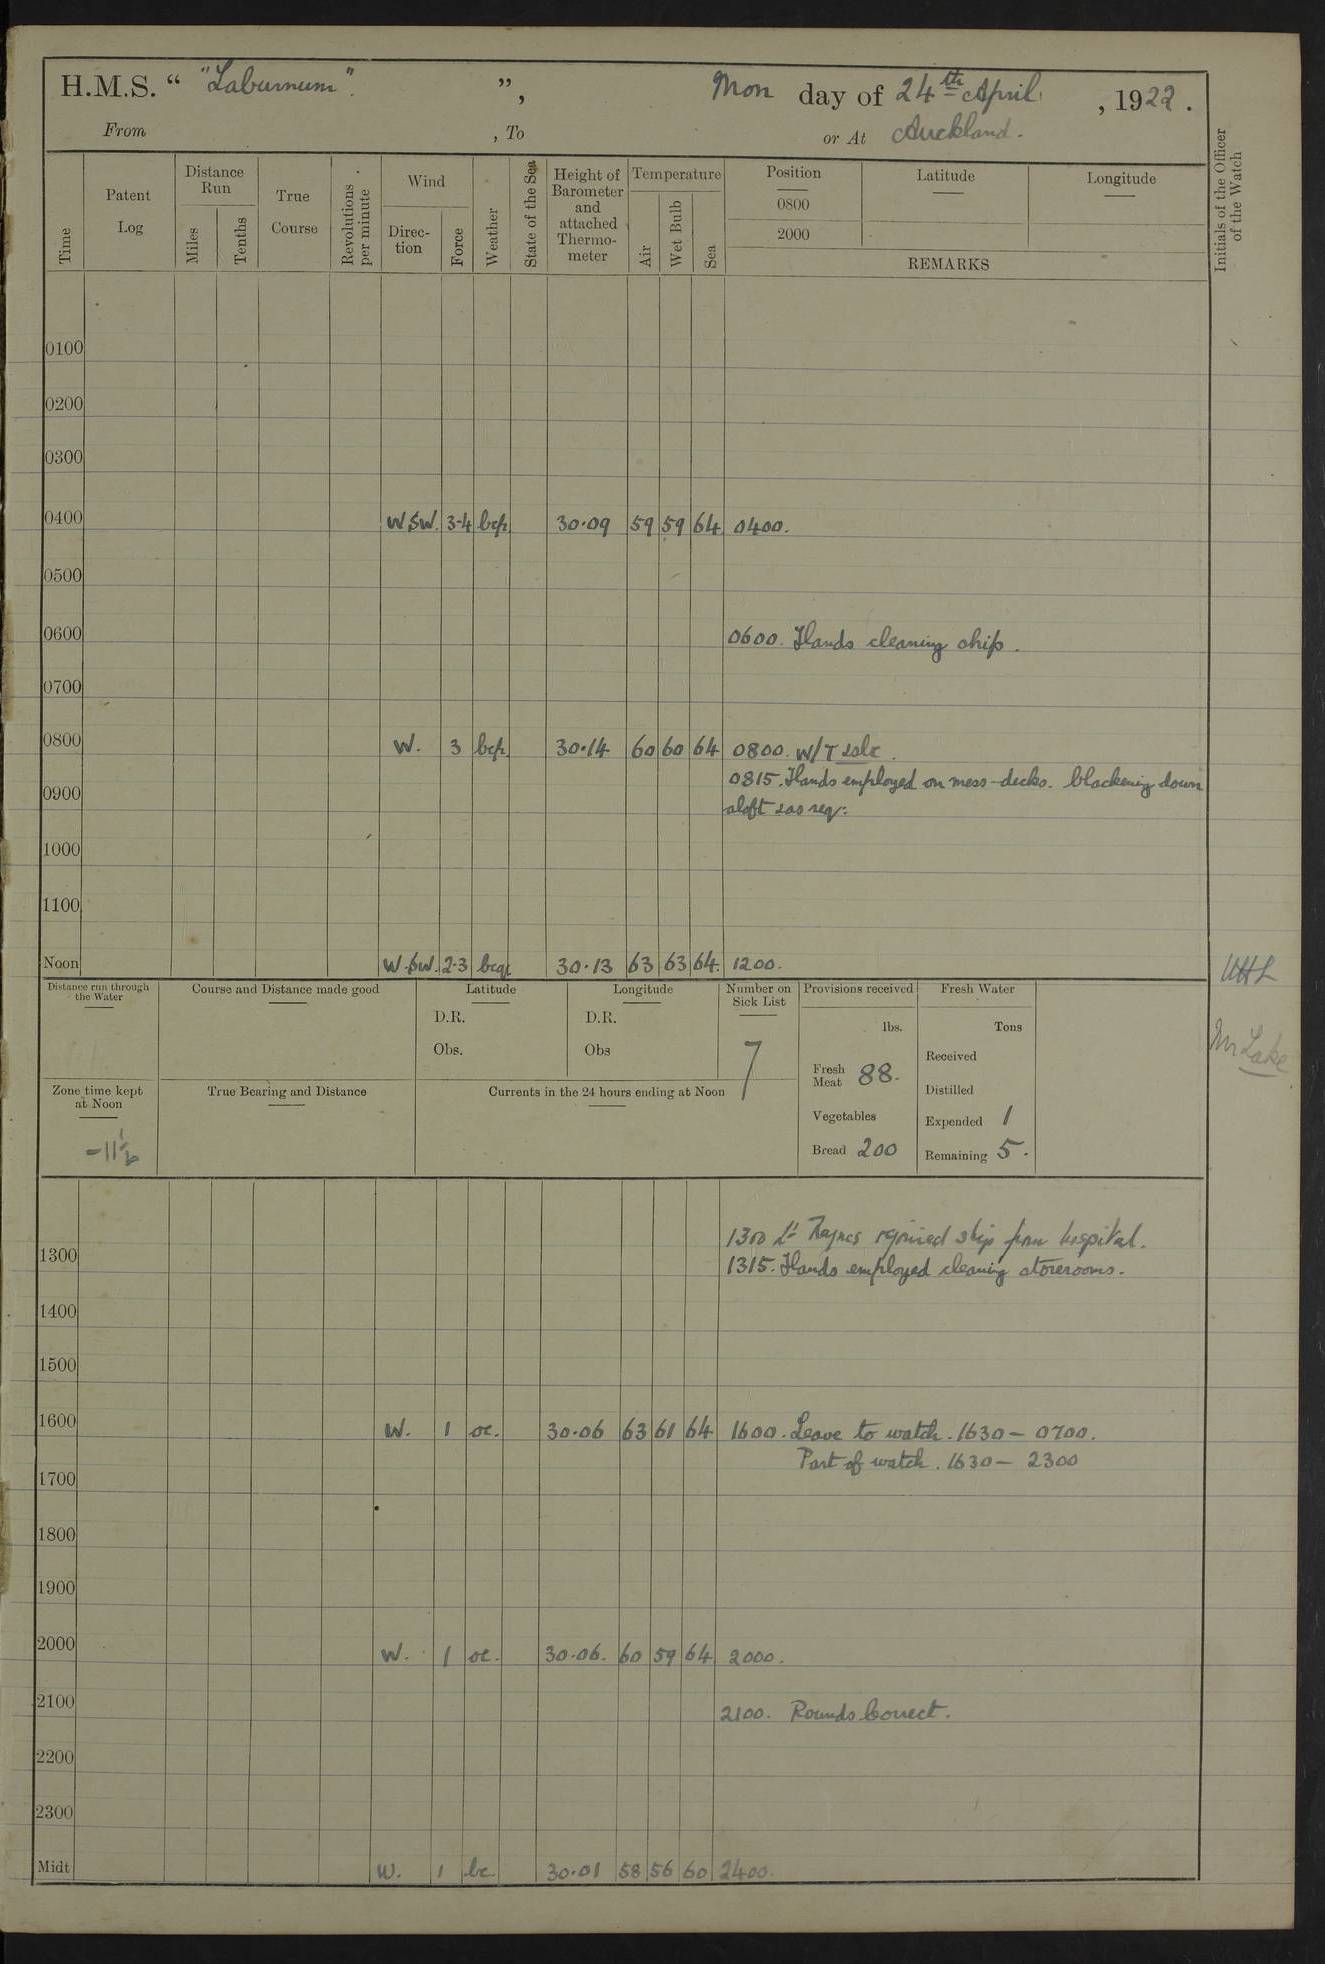 H.M.S. “ "Laburnum". ”, Mon day of 24th April , 1922.
From , To or At Auckland.
Time
Patent Log
Distance Run
Miles
Tenths
True Course
Revolutions per minute
Wind
Direc-tion
Force
Weather
State of the Sea
Height of Barometer and attached Thermo-meter
Temperature
Air
Wet Bulb
Sea
Position
0800
2000
Latitude
Longitude
REMARKS
Initials of the Officer of the Watch
0100
0200
0300
0400 WSW. 3-4 bcp 30.09 59 59 64 0400.
0500
0600 0600. Hands cleaning ship.
0700
0800 W. 3 bcp 30.14 60 60 64 0800. W/T
0815. Hands employed on mess-decks. blackening down
0900
aloft & as req:
1000
1100
Noon W.SW. 2-3 bcq 30.13 63 63 64. 1200.
Distance run through the Water
Course and Distance made good
Latitude
D.R.
Obs.
Longitude
D.R.
Obs
Number on Sick List
7
Provisions received
lbs.
Fresh Meat 88.
Vegetables
Bread 200
Fresh Water
Tons
Received
Distilled
Expended 1
Remaining 5.
Mr Lake
Zone time kept at Noon
-11½
True Bearing and Distance
Currents in the 24 hours ending at Noon
1300 Lt Haynes rejoined ship from hospital.
1300
1315. Hands employed cleaning storerooms.
1400
1500
1600 W. 1 oc. 30.06 63 61 64 1600. Leave to watch. 1630 – 0700.
Part of watch. 1630 – 2300
1700
1800
1900
2000 W. 1 oc. 30.06. 60 59 64 2000.
2100 2100. Rounds Correct.
2200
2300
Midt W. 1 bc. 30.01 58 56 60 2400.